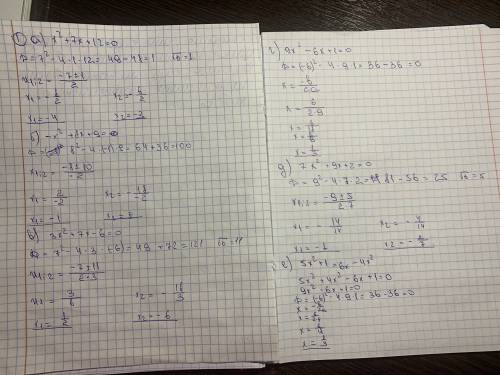 1) а) x² + 7x + 12 = 0
D = 7² - 4·1·12 = 49 - 48 = 1 √D = 1
x₁,₂ = (-7 ± 1)/2
x₁ = -8/2 x₂ = -6/2
x₁ = -4 x₂ = -3
б) -x² + 8x + 9 = 0
8² - 4·(-1)·9 = 64 + 36 = 100
x₁,₂ = (-8 ± 10)/-2
x₁ = 2/-2 x₂ = -18/-2
x₁ = -1 x₂ = 9
в) 3x² + 7x - 6 = 0
D = 7² - 4·3·(-6) = 49 + 72 = 121 √D = 11
x₁,₂ = (-7 ± 11)/2·3
x₂ = -6
г) 9x² - 6x + 1 = 0
D = (-6)² - 4·9·1 = 36 - 36 = 0
x = 6/2·9
x = 6/18
x = 1/3
д) 7x² + 9x + 2 = 0
D = 9² - 4·7·2 = 81 - 56 = 25 √D = 5
x₁,₂ = (-9 ± 5)/2·7
x₁ = -14/14 x₂ = -4/14
x₁ = -1
е) 5x² + 1 = 6x - 4x²
5x² + 4x² - 6x + 1 = 0
9x² - 6x + 1 = 0
D = (-6)² - 4·9·1 = 36 - 36 = 0
x = 1/3